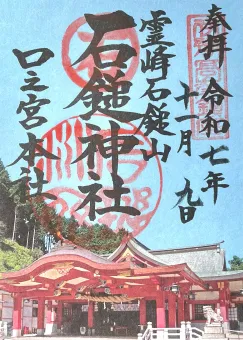 奉拝 令和七年
十一月 九日
霊峰石鎚山
石鎚神社
口之宮本社